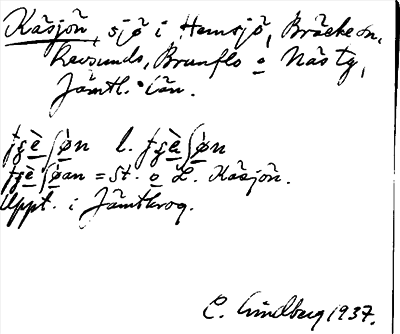 Käsjön, sjö i Hemsjö, Bräcke sn,
Revsunds, Brunflo o Näs tg,
Jämtl. län.
l.
= St. o L. Käsjön.
Uppt. i Jämtkrog.
C. Lindberg 1937.